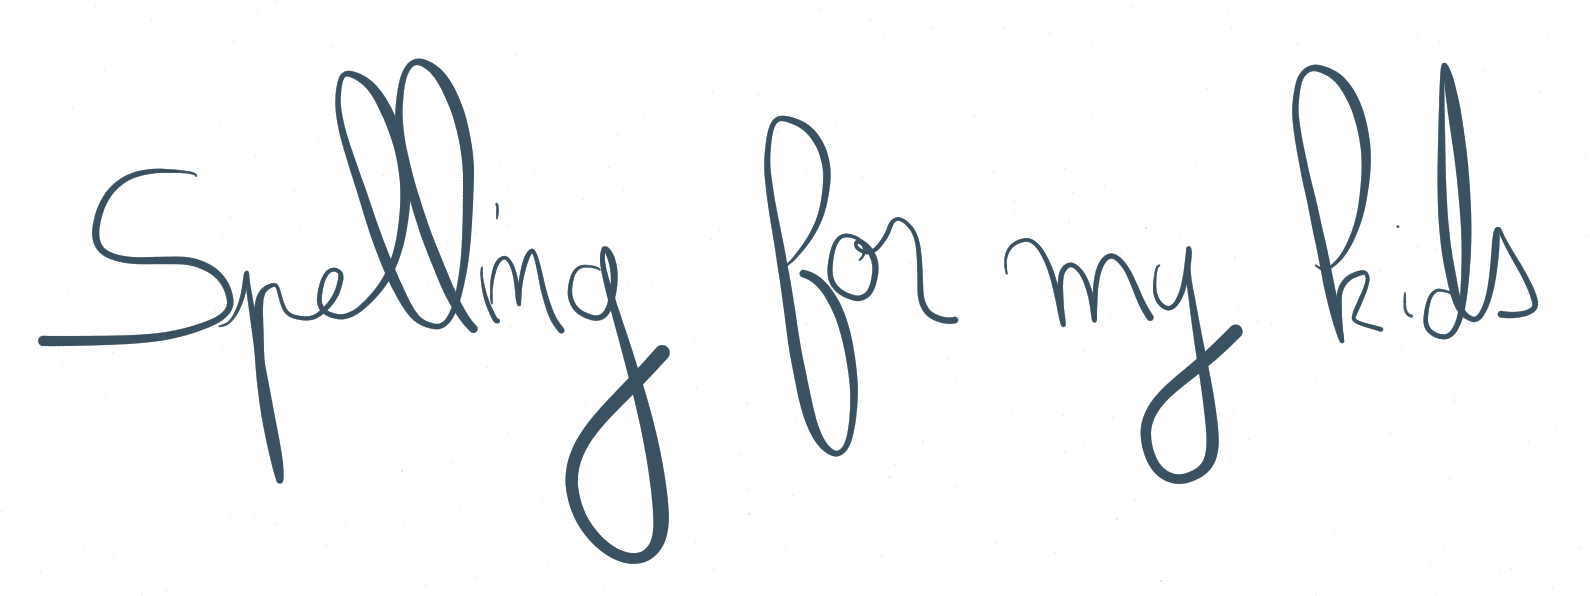 Spelling for my kids